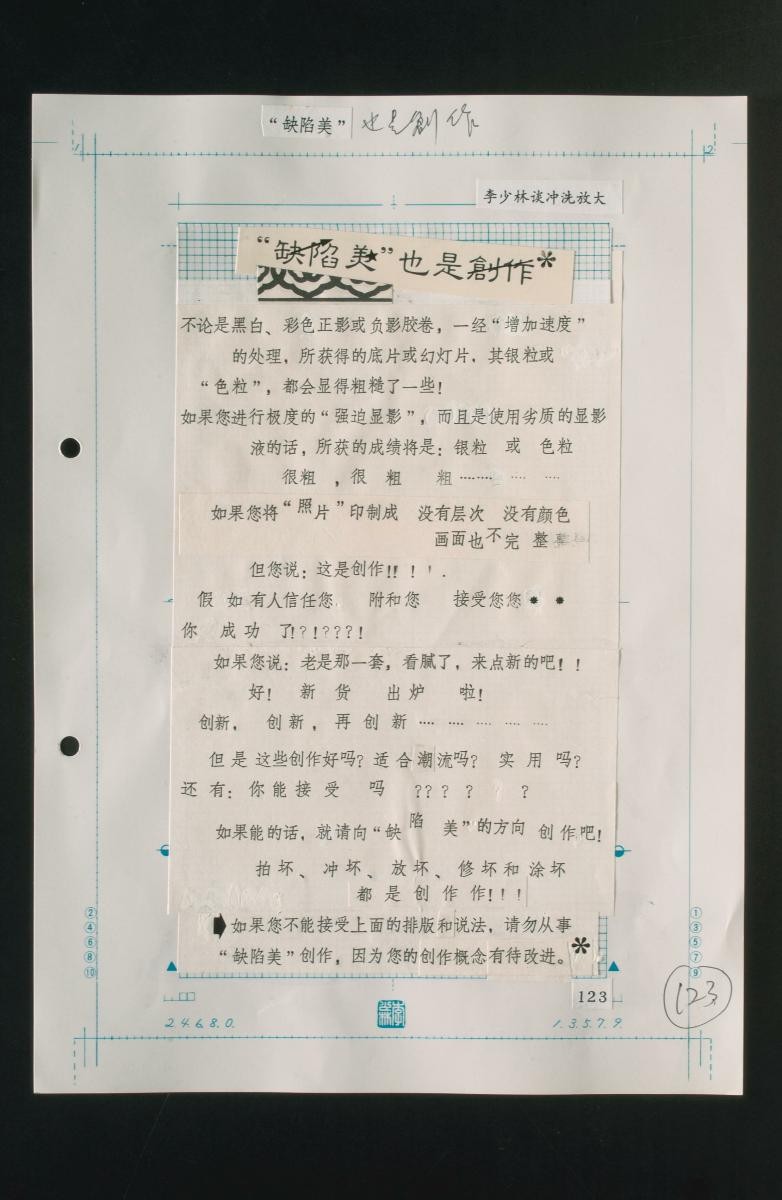 “缺陷美” 也是創作
李少林谈冲洗放大
“缺陷美”也是創作*
不论是黑白、彩色正影或负影胶卷，一经“增加速度”
的处理，所获得的底片或幻灯片，其银粒或
“色粒”，都会显得粗糙了一些！
如果您进行极度的“强迫显影”，而且是使用劣质的显影
液的话，所获的成绩将是：银粒 或 色粒
很粗 ，很 粗 粗 ………… …… ……
如果您将“照片”印制成 没有层次 没有颜色
画面也不完 整 整
但您说：这是创作!! ! ! .
假 如 有人信任您 附和您 接受您您 * *
你 成功 了!?!???!
如果您说：老是那一套，看腻了，来点新的吧！！
好！ 新 货 出炉 啦！
创新， 创新，再创新 …… …… …… …… ……
但是这些创作好吗？适合潮流吗？ 实用吗？
还有：你能接受 吗 ??? ? ? ?
如果能的话，就请向“缺陷 美”的方向 创作吧！
拍坏、冲坏、放坏、修坏和涂坏
都是创作作！！！
如果您不能接受上面的排版和说法，请勿从事
“缺陷美”创作，因为您的创作概念有待改进。*
123
123
2.4.6.8.0.
1.3.5.7.9.
1
2
②
④
⑥
⑧
⑩
①
③
⑤
⑦
⑨